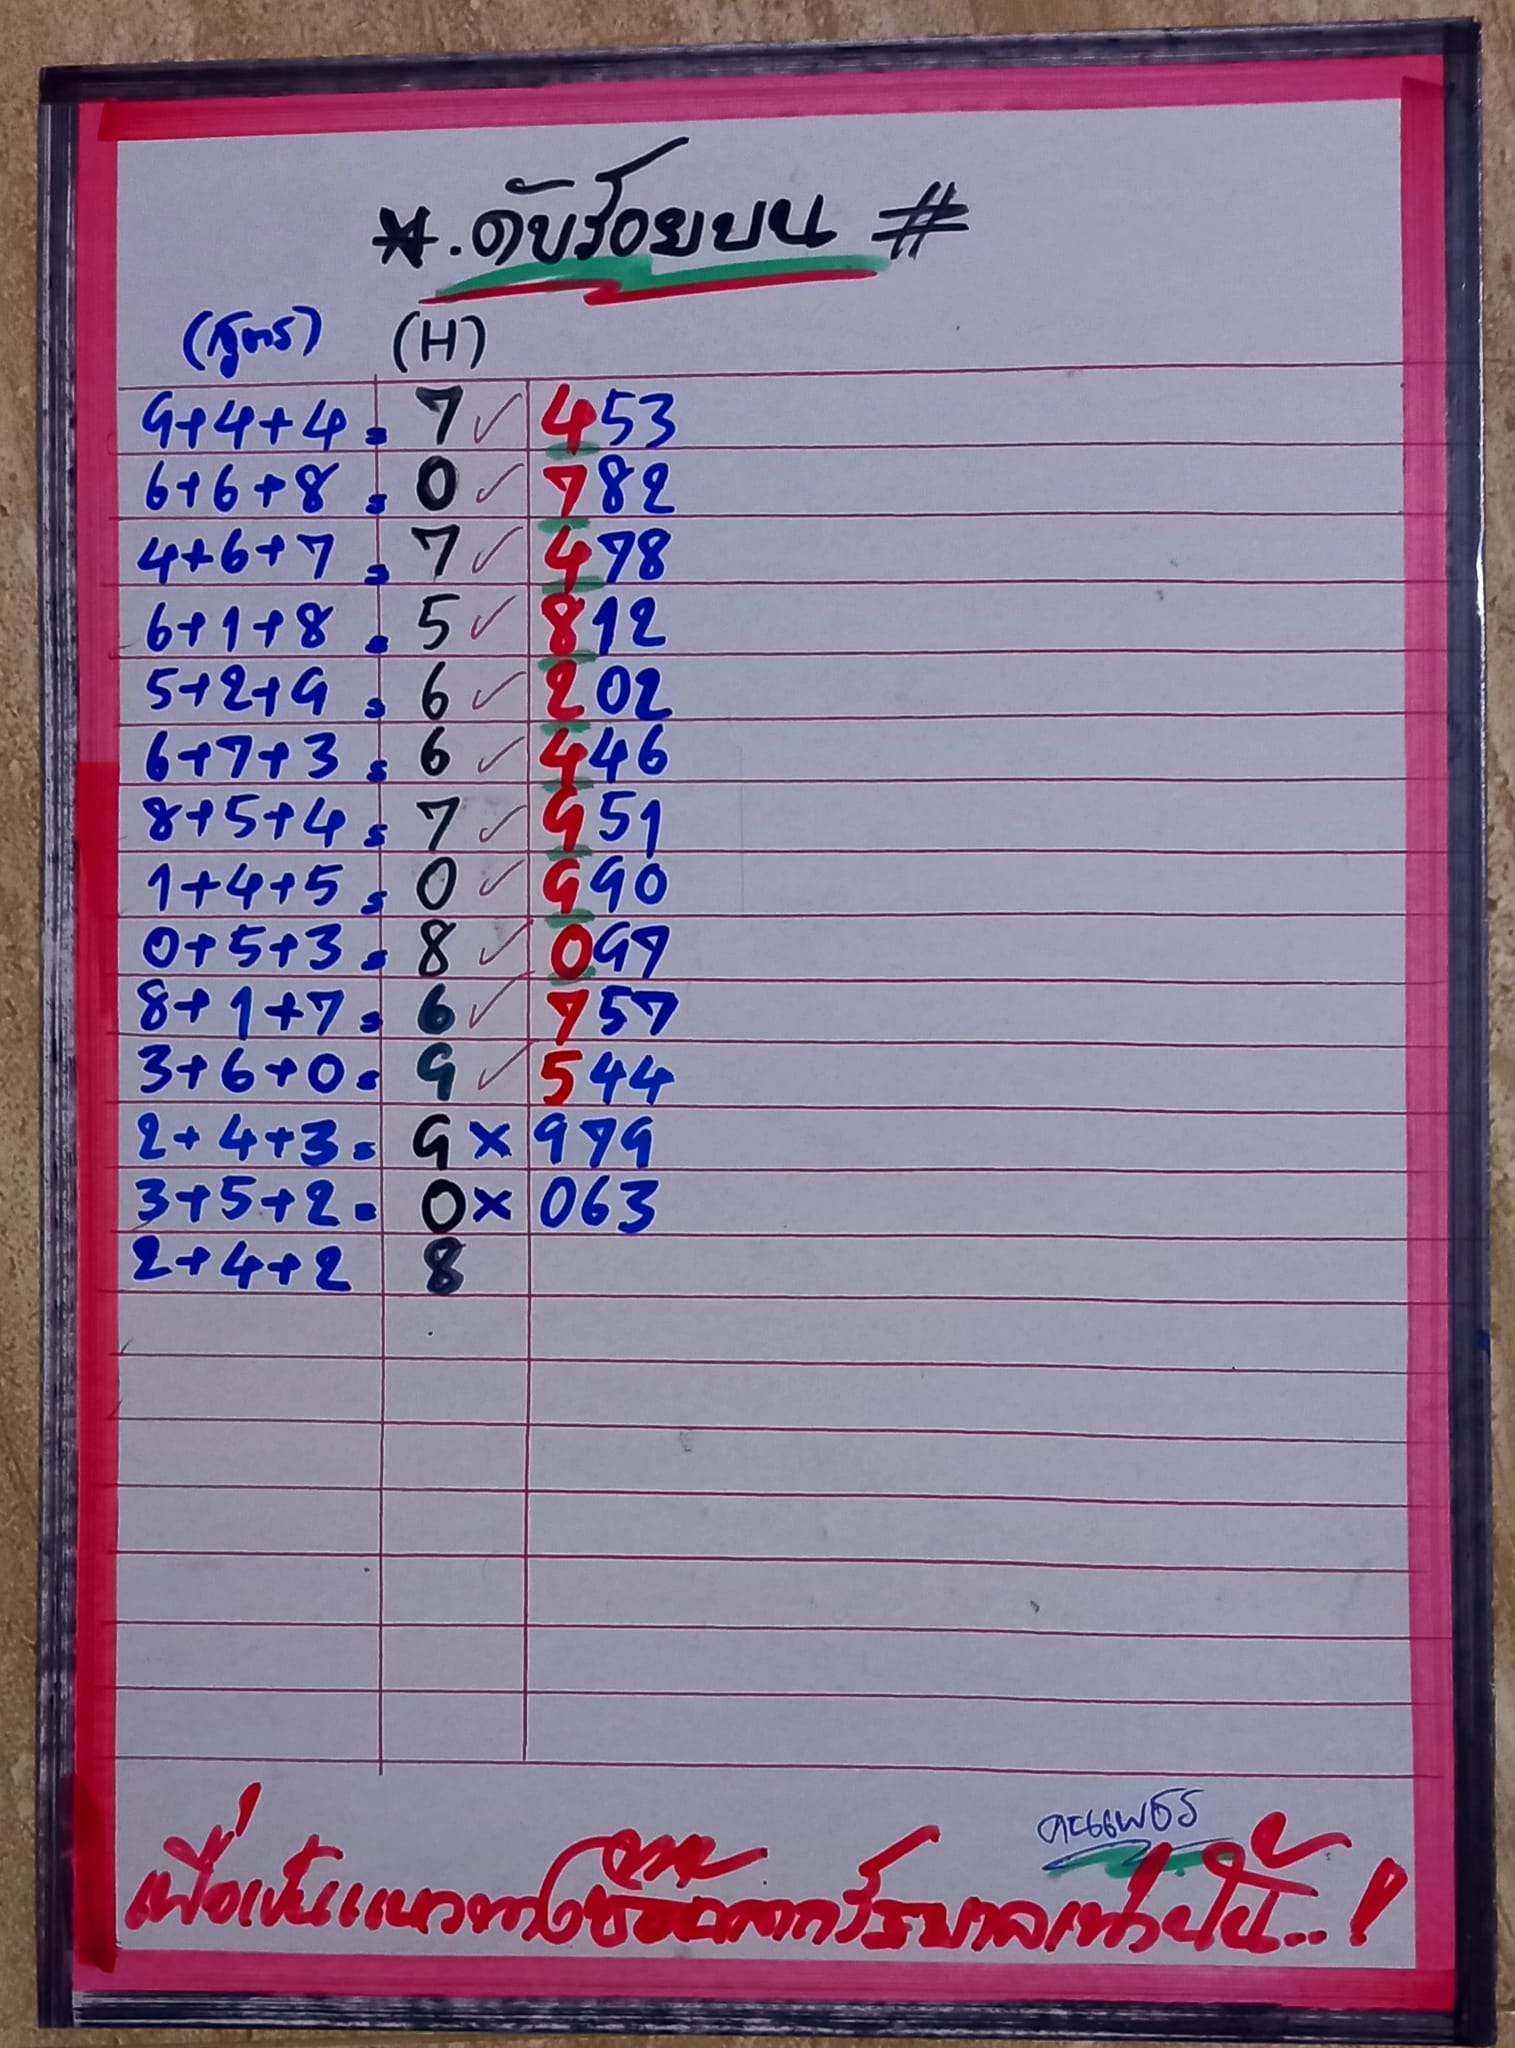 *.ดับร้อยบน #
(สูตร) (H)
9+4+4 = 7 ✓ 453
6+6+8 = 0 ✓ 782
4+6+7 = 7 ✓ 478
6+1+8 = 5 ✓ 812
5+2+9 = 6 ✓ 202
6+7+3 = 6 ✓ 446
8+5+4 = 7 ✓ 951
1+4+5 = 0 ✓ 990
0+5+3 = 8 ✓ 097
8+1+7 = 6 ✓ 757
3+6+0 = 9 ✓ 544
2+4+3 = 9 × 979
3+5+2 = 0 × 063
2+4+2 8
เพื่อเป็นแนวทาง
รัฐบาลเท่านั้น...!